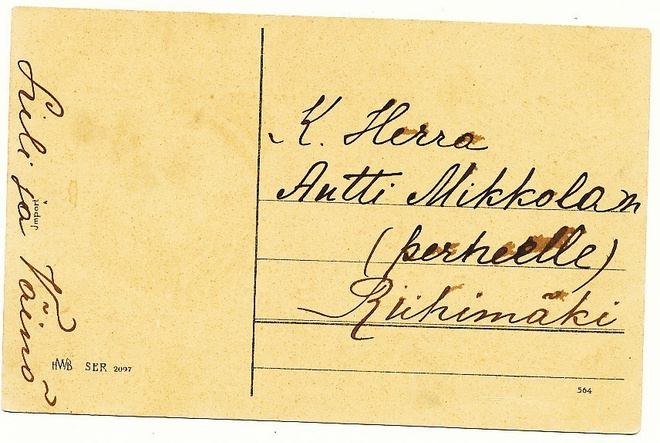 Lili ja Väinö
Import
HWB SER 2097
K. Herra
Antti Mikkolan
(perheelle)
Riihimäki
564